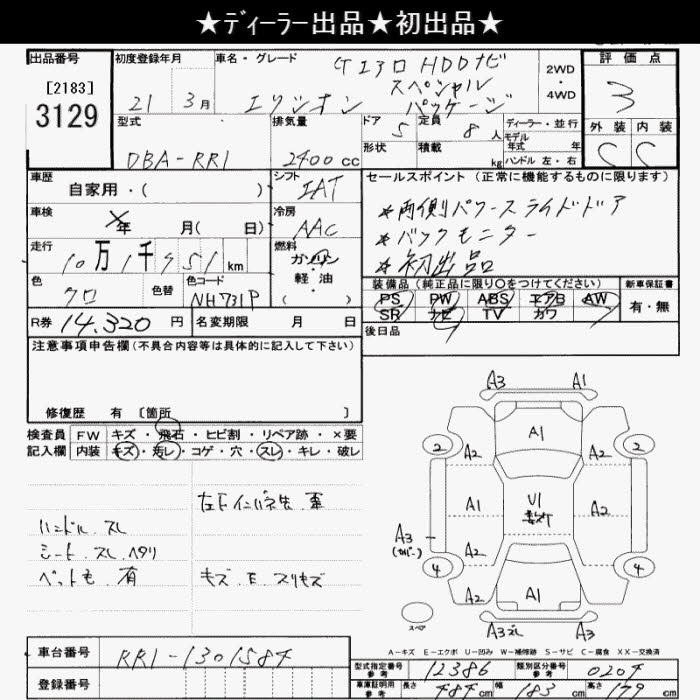 ★ディーラー出品★初出品★
出品番号
[2183]
3129
初度登録年月
21 3月
車名・グレード
G エアロ HDDナビ
スペシャル
エリシオン パッケージ
2WD
・
4WD
評価点
3
外装 内装
C C
型式
DBA-RR1
排気量
2400 cc
ドア 5
形状
定員 8 人
積載 kg
ディーラー・並行
モデル
年式 年
ハンドル 左・右
車歴
自家用・( )
シフト
IAT
車検
年 月( 日)
冷房
AAC
走行
10万1千951 km
燃料
ガソリン
・
軽油
( )
色
クロ
色替
色コード
NH731P
R券 14,320 円
名変期限 月 日
セールスポイント (正常に機能するものに限ります)
*両側パワースライドドア
*バックモニター
*初出品
装備品(純正品に限り○をつけてください)
PS PW ABS エアB AW
SR ナビ TV カワ
新車保証書
有・無
後日品
注意事項申告欄(不具合内容等は具体的に記入して下さい)
修復歴 有 〔箇所 〕
検査員
記入欄
FW キズ・飛石・ヒビ割・リペア跡・×要
内装 キズ・汚レ・コゲ・穴・スレ・キレ・破レ
ハンドル.スレ
シート.スレ.ヘタリ
ペット毛.有
キズ.E.スリキズ
A3 A1
A1
2 2
A2 A2
A1 U1 A2
A3
(カバー)
A2
4 4
A2 A1 A2
スペア
A3 A3
A-キズ E-エクボ U-凹み W-補修跡 S-サビ C-腐食 XX-交換済
車台番号
RR1-1301584
登録番号
型式指定番号
参考
12386
類別区分番号
参考
0204
車庫証明用
参考
長さ 484 cm
幅 183 cm
高さ 179 cm